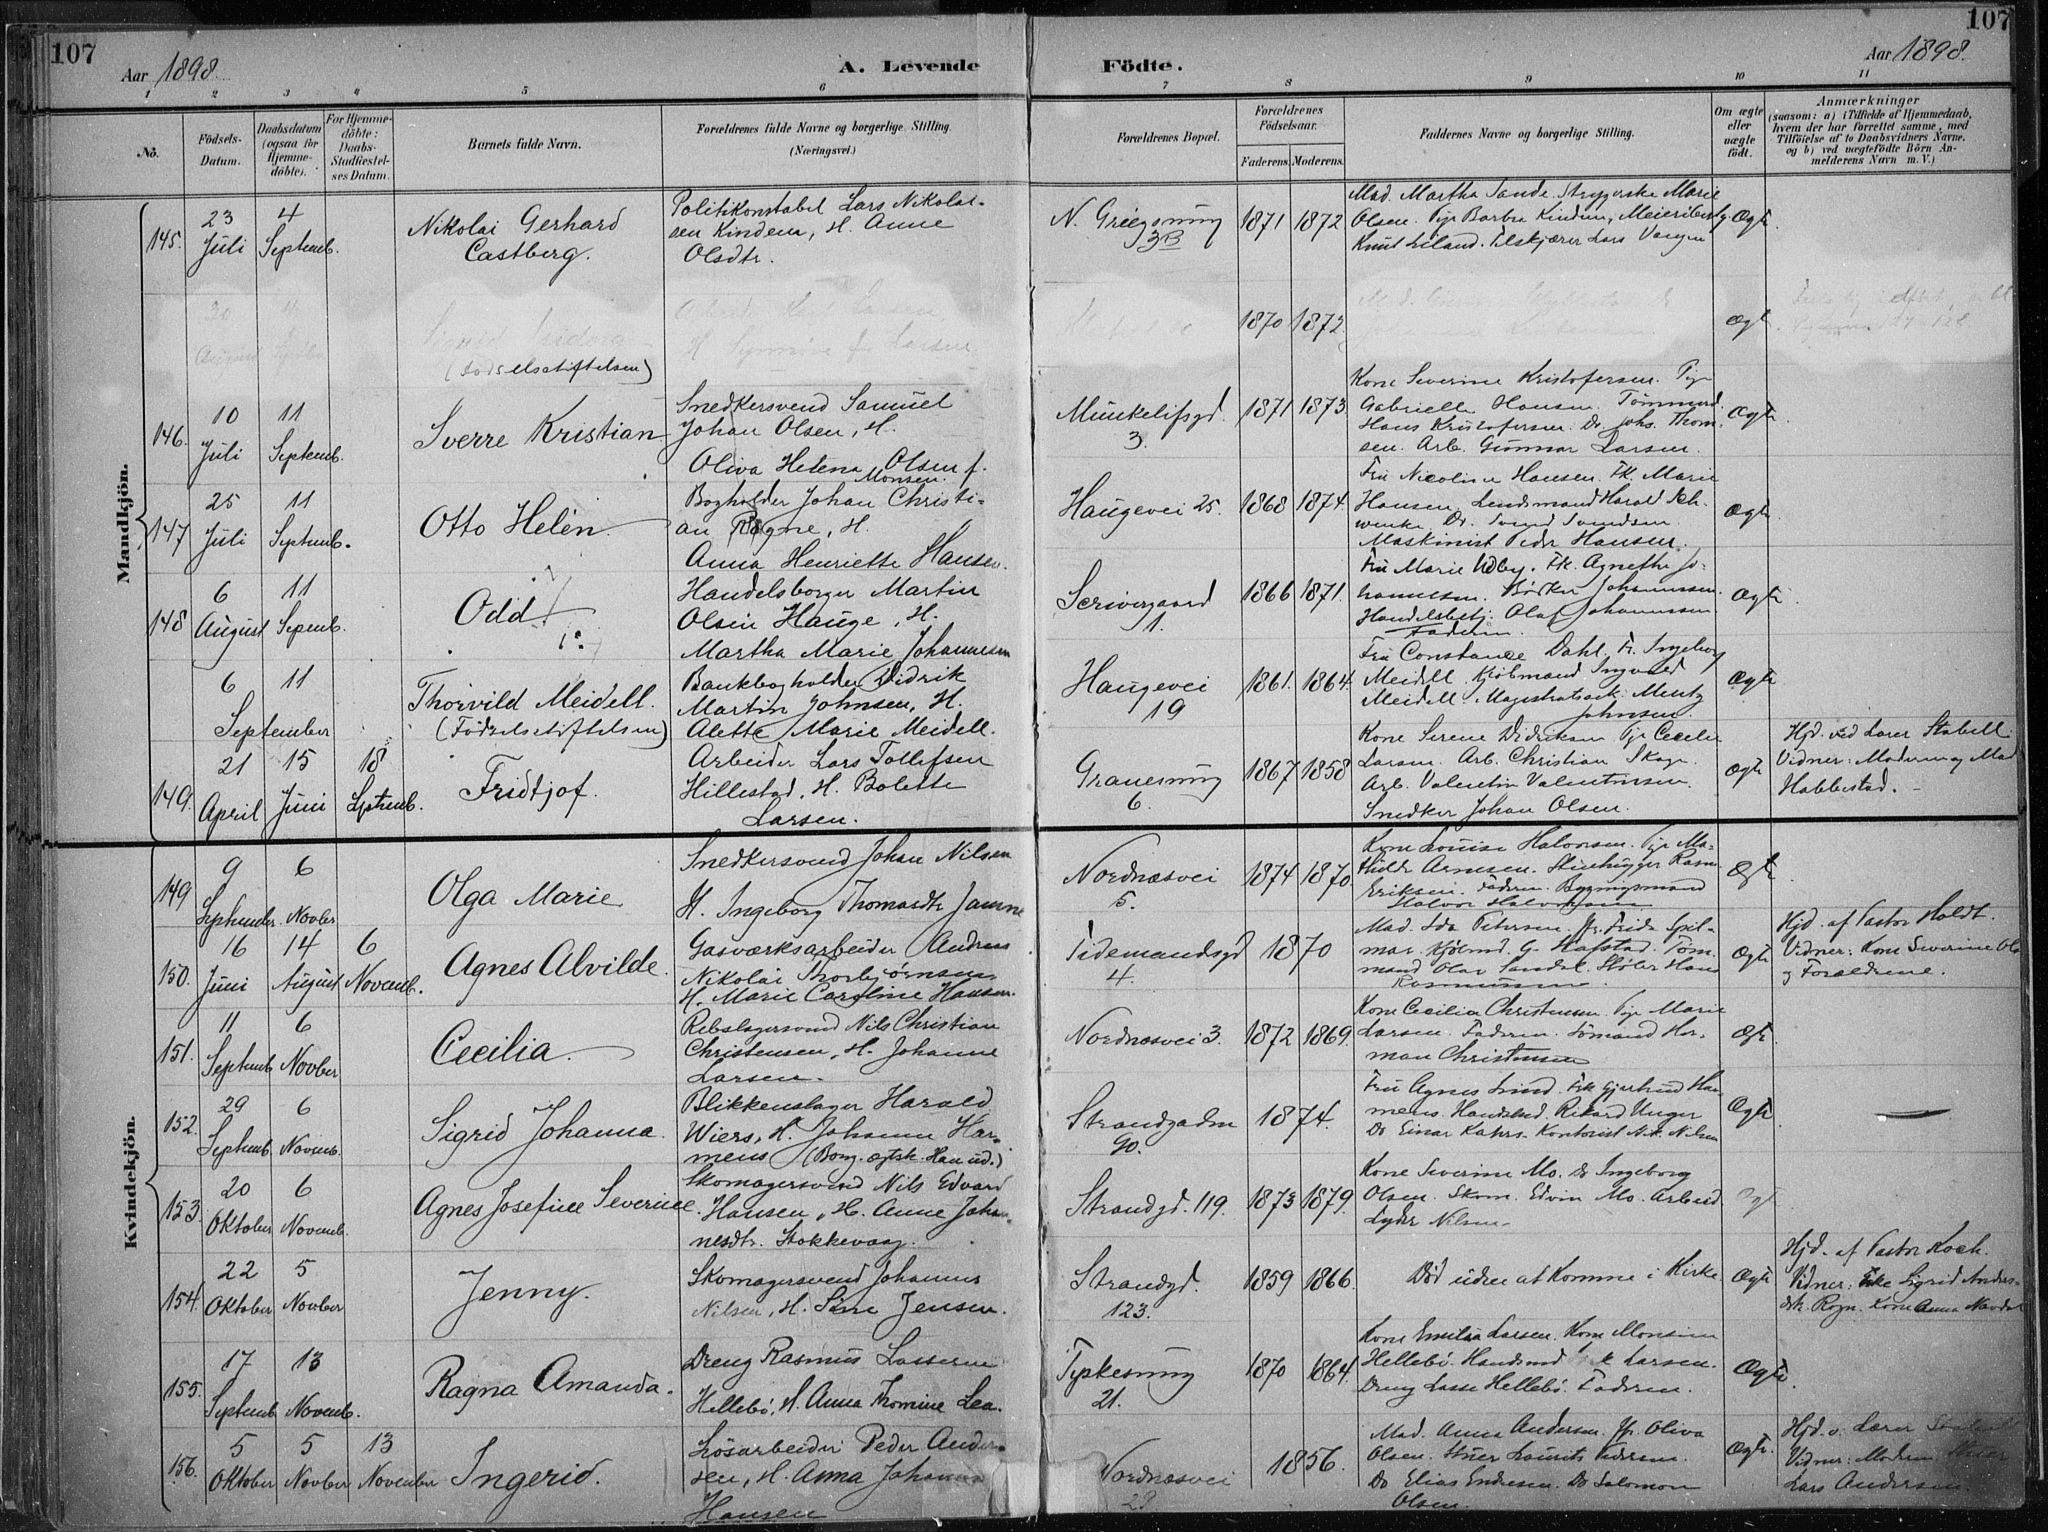 107
107
Aar 1898.
A. Levende Födte.
Aar 1898.
1 2 3 4 5 6 7 8 9 10 11
No.
Födsels-Datum.
Daabsdatum (ogsaa for Hjemme-döbte).
For Hjemme-döbte: Daabs-Stadfæstel-ses Datum.
Barnets fulde Navn.
Forældrenes fulde Navne og borgerlige Stilling.
(Næringsvei.)
Forældrenes Bopæl.
Forældrenes Födselsaar.
Faderens. Moderens.
Faddernes Navne og borgerlige Stilling.
Om ægte eller uægte födt.
Anmærkninger
(saasom: a) i Tilfælde af Hjemmedaab,
hvem der har forrettet samme, med
Tilföielse af to Daabsvidners Navne,
og b) ved uægtefödte Börn An-
melderens Navn m. V.)
Mandkjön.
145. 23 Juli 4 Septemb. Nikolai Gerhard Castberg.
Politikonstabel Lars Nikolai-
sen Kindem, H. Anne
Olsdtr.
N. Griegsmug 3B 1871 1872
Mad. Martha Sande. Strygerske Marie
Olsen. Pige Barbra Kindem, Meieribesty.
Knut Liland. Tilskjærer Lars Vangen
Ægte
30 4
(Födselsstiftelsen)
H. Synnöve Larsen
1870 1872.
Ægt.
146. 10 Juli 11 Septemb. Sverre Kristian
Snedkersvend Samuel
Johan Olsen, H.
Oliva Helena Olsen f.
Monsen.
Munkelifsgd. 3. 1871 1873.
Kone Severine Kristofersen. Pige
Gabrielle Hansen. Tömmerd.
Hans Kristofersen. Do Johs. Thom-
sen. Arb. Gunnar Larsen.
Ægte
147 25 Juli 11 Septemb. Otto Helén
Bogholder Johan Christi-
an Ragne, H.
Anna Henriette Hansen.
Haugevei 25. 1868 1874.
Fru Nicoline Hansen. Frk. Marie
Hansen. Lensmand Harald Sch-
wenke. Do. Svend Svendsen.
Maskinist Peder Hansen.
Ægte
148 6 August 11 Septemb. Odd
Handelsborger Martin
Olsen Hauge, H.
Martha Marie Johannesen
Scrivergaard 1. 1866 1871.
Fru Marie Udby. Frk. Agnethe Jo-
hannesen. Bödker Johannessen.
Handelsbetj. Olaf Johannessen
Faderen.
Ægte
6 11 September Thorvild Meidell.
(Födselsstiftelsen)
Bankbogholder Didrik
Martin Johnsen, H.
Alette Marie Meidell.
Haugevei 19 1861. 1864.
Fru Constance Dahl. Fr. Ingeborg
Meidell. Kjöbmand Ingvald
Meidell. Magistratssek. Mentz
Johnsen.
Ægte
149. 21 April 15 Juni 18 Septemb. Fridtjof.
Arbeider Lars Tollefsen
Hillestad, H. Bolette
Larsen.
Granesmug 6. 1867 1858
Kone Serene Didriksen Pige Cecilie
Larsen. Arb. Christian Skage.
Arb. Valentin Valentinsen.
Snedker Johan Olsen.
Ægte
Hjd. ved Lærer Stabell.
Vidner: Moderen og Mad
Habbestad.
Kvindekjön.
149 9 September 6 Novber Olga Marie
Snedkersvend Johan Nilsen
H. Ingeborg Thomasdtr Janne
Nordnæsvei 5. 1874 1870.
Kone Louise Halvorsen. Pige Ma-
thilde Arnesen. Stenhugger Rasm.
Eriksen. Faderen. Bygningsmand
Halvor Halvorsen
Ægte
150. 16 Juni 14 August 6 Novemb. Agnes Alvilde.
Gasværksarbeider Andreas
Nikolai Thorbjörnsen
H. Marie Caroline Hansen.
Tidemandsgd 4. 1870
Mad. Ida Petersen. Jfr. Frida Gjel-
mar. Kjöbmd. G. Hafstad. Töm-
mand Olai Sandal. Höler Hans
Rasmussen.
Ægte
Hjd. af Pastor Holdt.
Vidner: Kone Severine Ols
og Forældrene.
151. 11 Septemb. 6 Novber Cecilia.
Rebslagersvend Nils Christian
Christensen, H. Johanne
Larsen.
Nordnæsvei 3. 1872 1869.
Kone Cecilia Christensen. Pige Marie
Larsen. Faderen. Sömand Her-
man Christensen
Ægte
152. 29 Septemb. 6 Novemb. Sigrid Johanna.
Blikkenslager Harald
Wiers, H. Johanne Har-
mens (Borg. ægtsk. Han ud.)
Strandgaden 90. 1874.
Fru Agnes Lind. Frk Gjertrud Har-
mens. Handelsbd. Rikard Unger
Do Einar Kahrs. Kontorist Nik. Nilsen
Ægte
153. 20 Oktober 6 Novemb. Agnes Josefine Severine.
Skomagersvend Nils Edvard
Hansen, H. Anne Johan-
nesdtr. Stokkevaag.
Strandgd. 119. 1873 1879.
Kone Severine Mo. Do Ingeborg
Olsen. Skom. Edvin Mo. Arbeid.
Lyder Nilsen.
Ægt
154. 22 Oktober 5 Novber Jenny.
Skomagersvend Johannes
Nilsen, H. Sine Jensen.
Strandgd. 123. 1859 1866.
Död uden at komme i Kirke
Ægte
Hjd. af Pastor Koch.
Vidner: Frk Sigrid Anders-
dtr. Rogn. Kone Anna Navdal
155. 17 Septemb. 13 Novemb. Ragna Amanda.
Dreng Rasmus Lassesen
Hellebö, H. Anna Thomine Lea.
Typkesmug 21. 1870 1864.
Kone Emilia Larsen. Kone Monsine
Hellebö. Handsmd Larsen.
Dreng Lasse Hellebö. Faderen.
Ægte
156. 5 Oktober 5 Novber 13 November Ingerid.
Lösarbeider Peder Ander-
sen, H. Anna Johanna
Hansen
Nordnæsvei 29 1856.
Mad. Anna Andersen. Jfr. Oliva
Olsen. Stuer Laurits Pedersen.
Do Elias Endresen. Do Salomon
Olsen.
Ægte
Hjd. v. Lærer Stabell
Vidner: Moderen
Lars Andersen